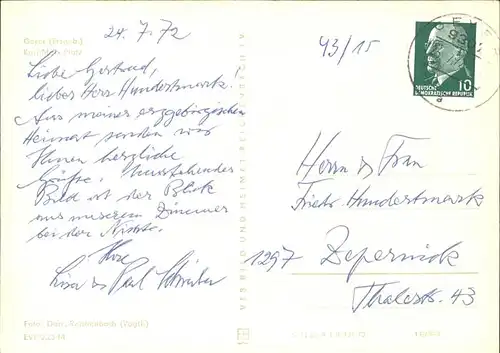 24.7.72
Liebe Gertrud,
lieber Herr Hundertmark!
Aus meiner erzgebirgischen
Heimat senden wir
Ihnen herzliche
Grüße. Umstehendes
Bild ist der Blick
aus unserem Zimmer
bei der
Ihre
Lisa u. Paul
43/15
DEUTSCHE
DEMOKRATISCHE REPUBLIK
10
Herrn u. Frau
Friedr. Hundertmark
1297 Zepernick
Thalestr. 43